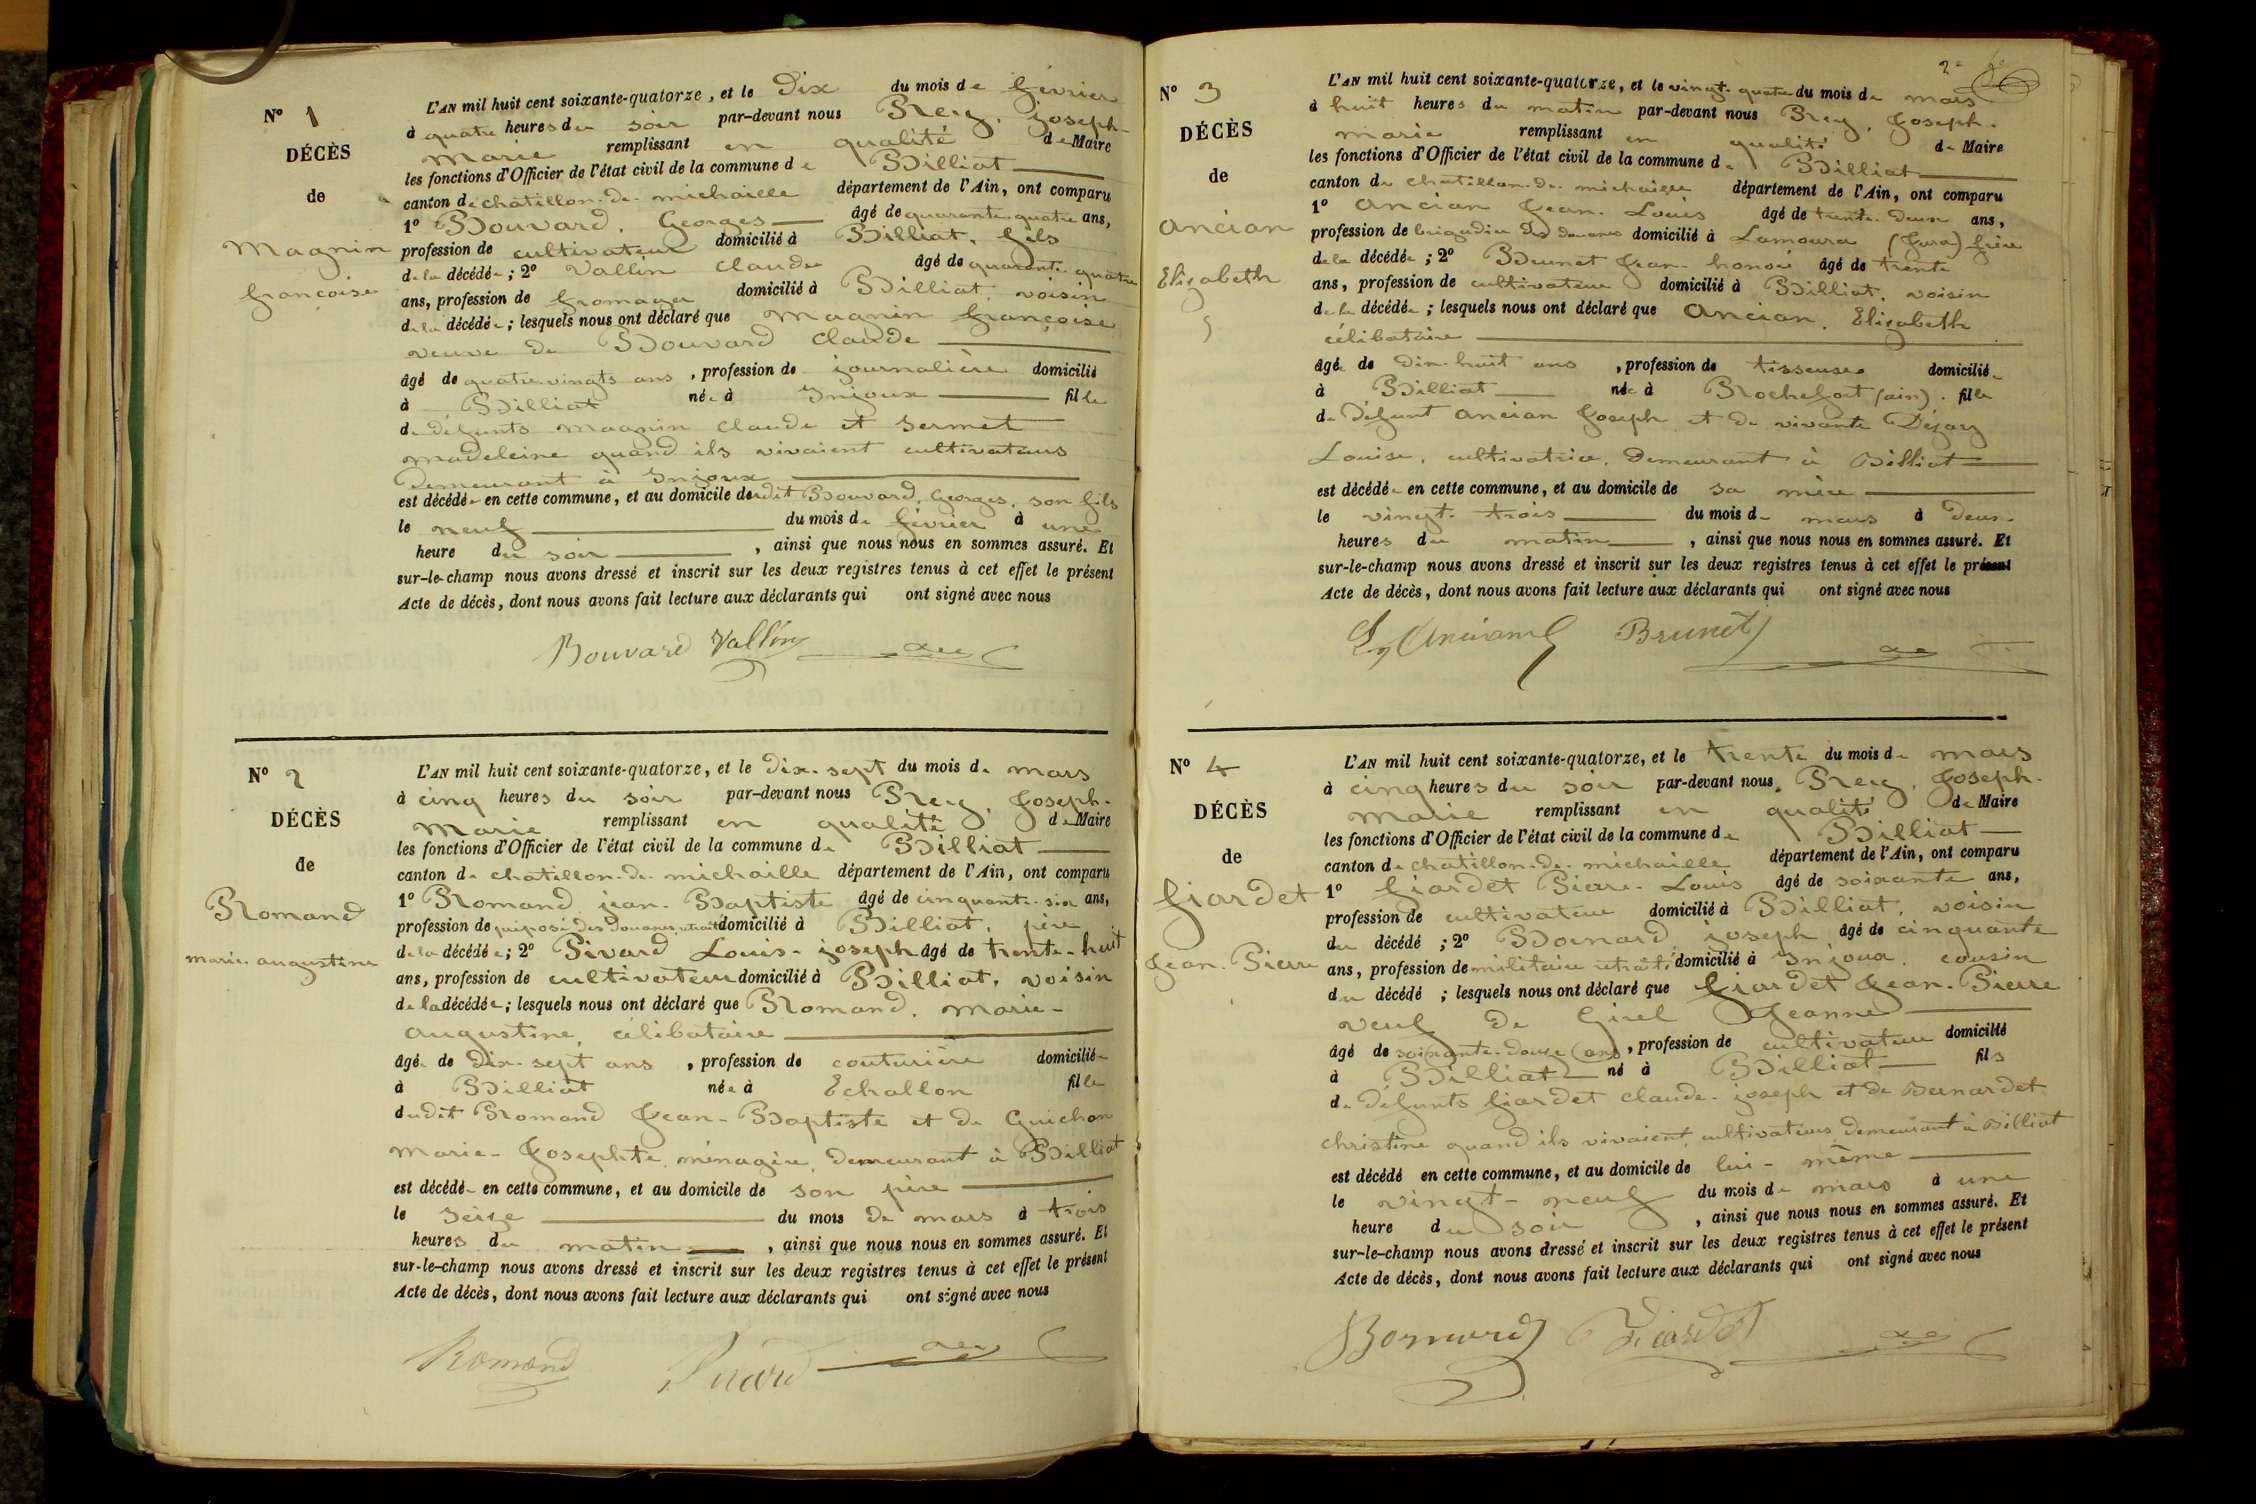 Nº 1
DÉCÈS
de
Magnin
françoise
L'AN mil huit cent soixante-quatorze, et le Dix du mois de février
à quatre heures du soir par-devant nous Rey, joseph-
marie remplissant en qualité de Maire
les fonctions d'Officier de l'état civil de la commune de Billiat
canton de châtillon-de-michaille département de l'Ain, ont comparu
1º Bouvard, Georges âgé de quarante-quatre ans,
profession de cultivateur domicilié à Billiat, fils
de la décédée; 2º Vallin claude âgé de quarante-quatre
ans, profession de fromager domicilié à Billiat, voisin
de la décédée; lesquels nous ont déclaré que Magnin françoise
veuve de Bouvard claude
âgé de quatre-vingts ans, profession de journalière domicilié
à Billiat née à Injoux fille
de défunts Magnin claude et Sermet
madeleine quand ils vivaient cultivateurs
demeurant à Injoux
est décédée en cette commune, et au domicile dudit Bouvard, Georges, son fils
le neuf du mois de février à une
heure du soir, ainsi que nous nous en sommes assuré. Et
sur-le-champ nous avons dressé et inscrit sur les deux registres tenus à cet effet le présent
Acte de décès, dont nous avons fait lecture aux déclarants qui ont signé avec nous
Bouvard Vallin
Nº 2
DÉCÈS
de
Romand
marie-augustine
L'AN mil huit cent soixante-quatorze, et le dix-sept du mois de mars
à cinq heures du soir par-devant nous Rey, Joseph-
Marie remplissant en qualité de Maire
les fonctions d'Officier de l'état civil de la commune de Billiat
canton de chatillon-de-michaille département de l'Ain, ont comparu
1º Romand jean-Baptiste âgé de cinquante-six ans,
profession de préposé des douanes retraité domicilié à Billiat, père
de la décédée; 2º Pivard Louis-joseph âgé de trente-huit
ans, profession de cultivateur domicilié à Billiat, voisin
de la décédée; lesquels nous ont déclaré que Romand, marie-
augustine, célibataire
âgée de dix-sept ans, profession de couturière domiciliée
à Billiat née à Echallon fille
dudit Romand Jean-Baptiste et de Guichon
marie-Josephte, ménagère, demeurant à Billiat
est décédée en cette commune, et au domicile de son père
le seize du mois de mars à trois
heures du matin, ainsi que nous nous en sommes assuré. Et
sur-le-champ nous avons dressé et inscrit sur les deux registres tenus à cet effet le présent
Acte de décès, dont nous avons fait lecture aux déclarants qui ont signé avec nous
Romand Pivard
Nº 3
DÉCÈS
de
ancian
Elizabeth
L'AN mil huit cent soixante-quatorze, et le vingt-quatre du mois de mars
à huit heures du matin par-devant nous Rey, Joseph-
marie remplissant en qualité de Maire
les fonctions d'Officier de l'état civil de la commune de Billiat
canton de châtillon-de-michaille département de l'Ain, ont comparu
1º ancian Jean-Louis âgé de trente-deux ans,
profession de brigadier des douanes domicilié à Lamoura (Jura) frère
de la décédée; 2º Brunet Jean-honoré âgé de trente
ans, profession de cultivateur domicilié à Billiat, voisin
de la décédée; lesquels nous ont déclaré que ancian, Elizabeth
célibataire
âgée de dix-huit ans, profession de tisseuse domiciliée
à Billiat née à Rochefort (ain). fille
de défunt ancian Joseph et de vivante Déjary
Louise, cultivatrice, demeurant à Billiat
est décédée en cette commune, et au domicile de sa mère
le vingt-trois du mois de mars à deux
heures du matin, ainsi que nous nous en sommes assuré. Et
sur-le-champ nous avons dressé et inscrit sur les deux registres tenus à cet effet le présent
Acte de décès, dont nous avons fait lecture aux déclarants qui ont signé avec nous
Brunet
Nº 4
DÉCÈS
de
fiardet
Jean-Pierre
L'AN mil huit cent soixante-quatorze, et le trente du mois de mars
à cinq heures du soir par-devant nous, Rey, Joseph-
marie remplissant en qualité de Maire
les fonctions d'Officier de l'état civil de la commune de Billiat
canton de chatillon-de-michaille département de l'Ain, ont comparu
1º fiardet Pierre-Louis âgé de soixante ans,
profession de cultivateur domicilié à Billiat, voisin
du décédé; 2º Bornard joseph âgé de cinquante
ans, profession de militaire retraité domicilié à Injoux, cousin
du décédé; lesquels nous ont déclaré que fiardet Jean-Pierre
veuf de Girel Jeanne
âgé de soixante-douze ans, profession de cultivateur domicilié
à Billiat né à Billiat fils
de défunts fiardet claude-joseph et de Bernardet
christine quand ils vivaient cultivateurs demeurant à Billiat
est décédé en cette commune, et au domicile de lui-même
le vingt-neuf du mois de mars à une
heure du soir, ainsi que nous nous en sommes assuré. Et
sur-le-champ nous avons dressé et inscrit sur les deux registres tenus à cet effet le présent
Acte de décès, dont nous avons fait lecture aux déclarants qui ont signé avec nous
Bornard fiardet